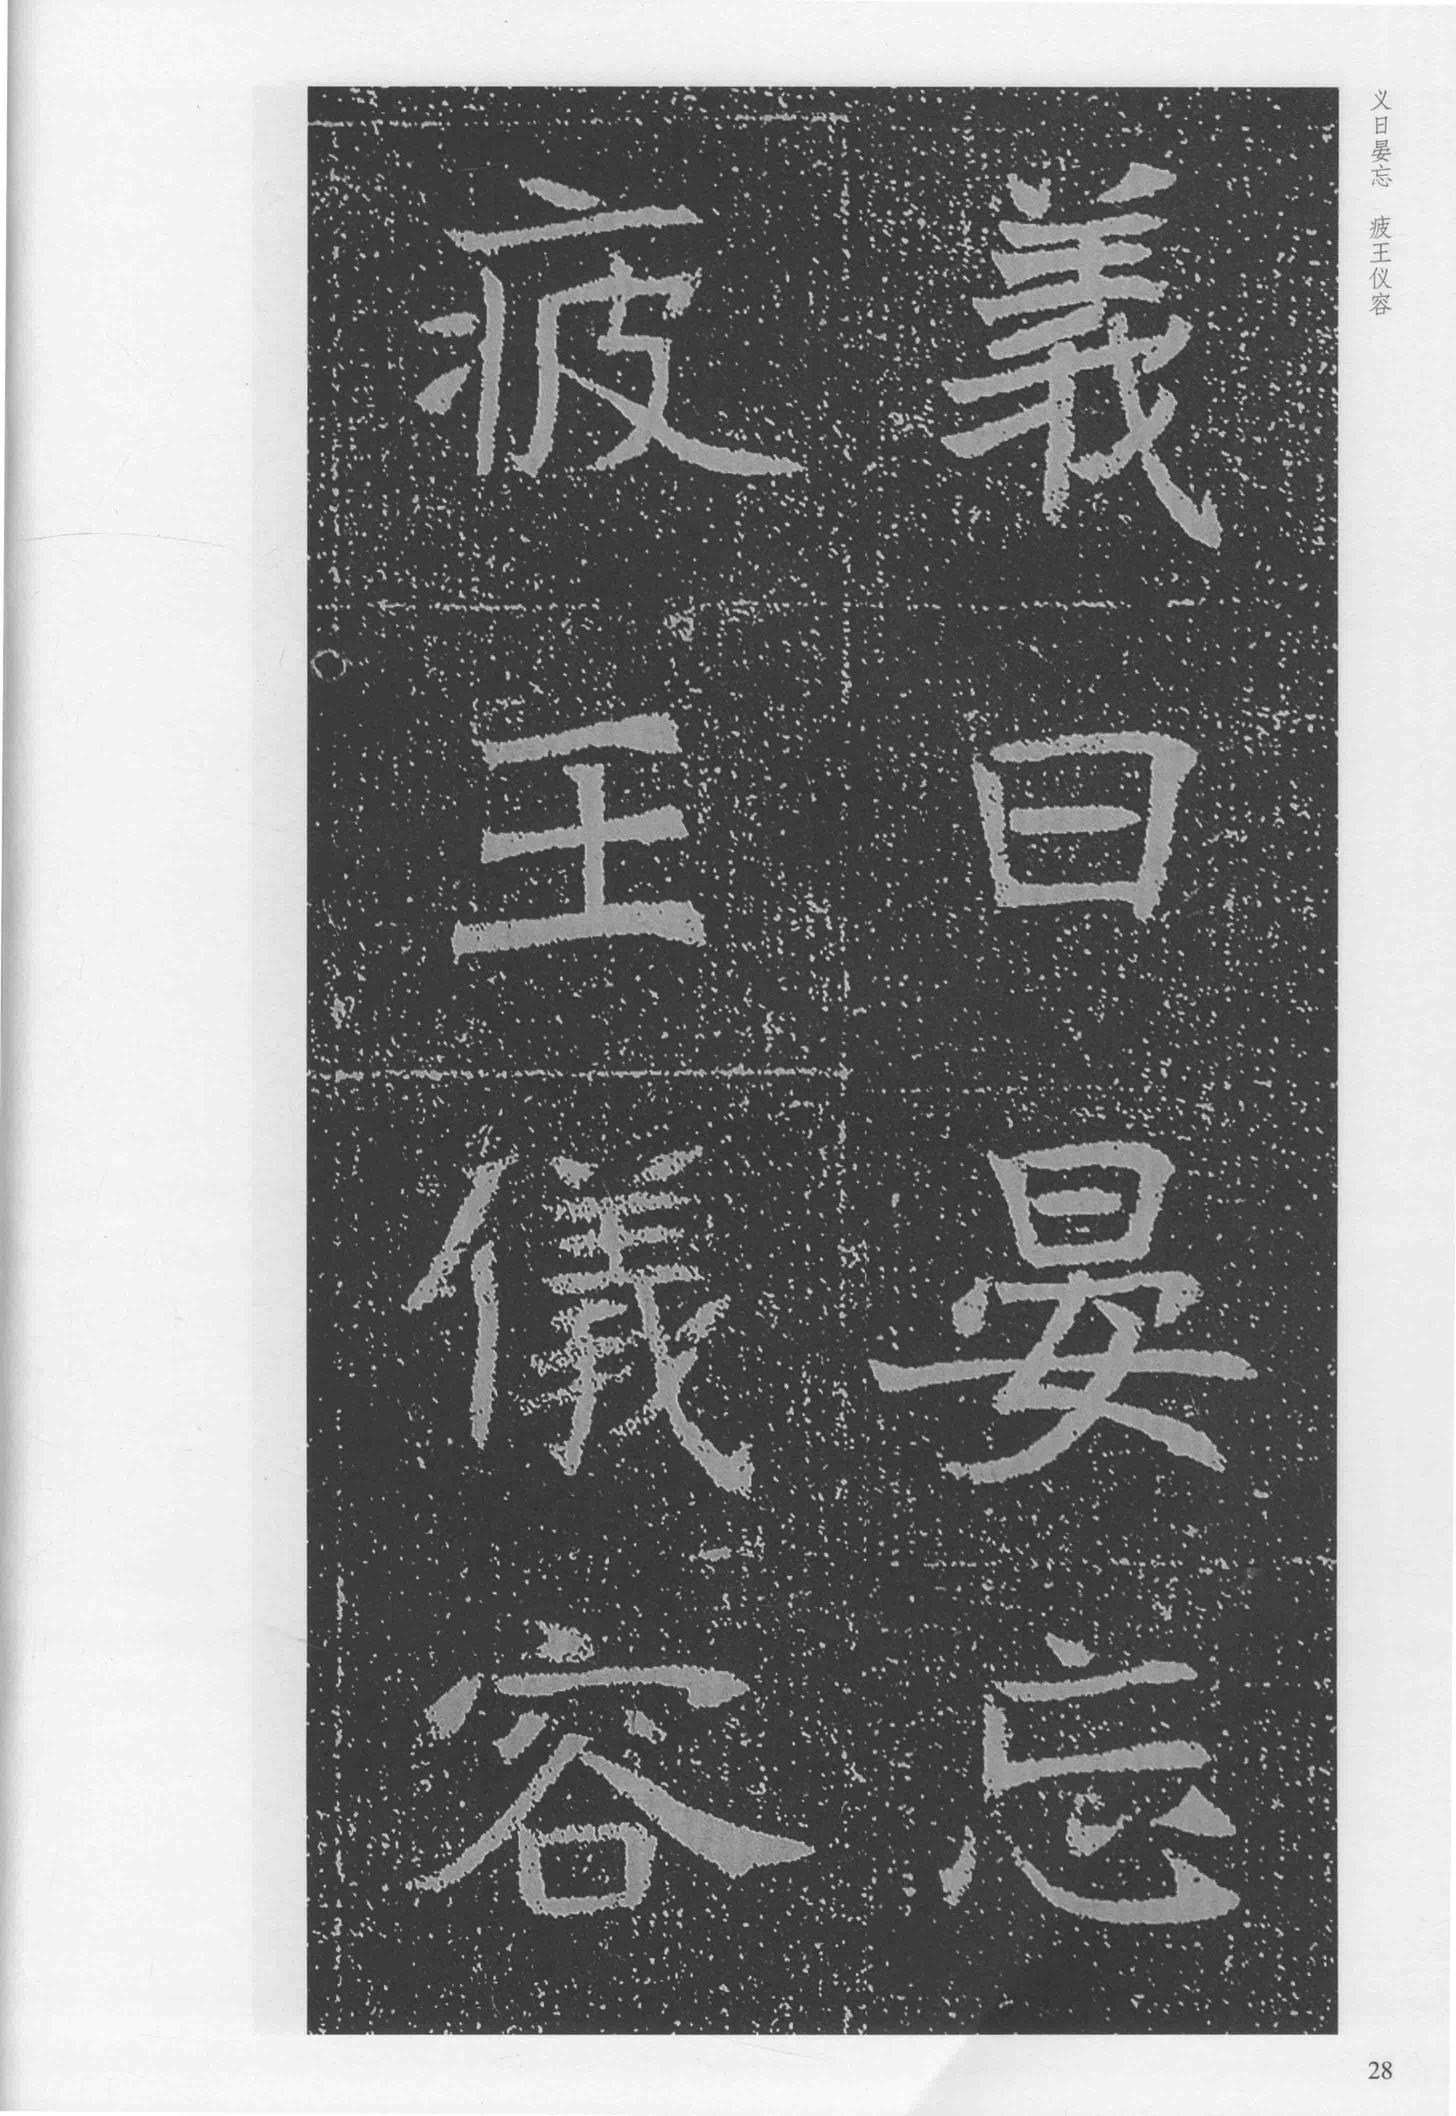 義日晏忘
疲王儀容
义日晏忘 疲王仪容
28